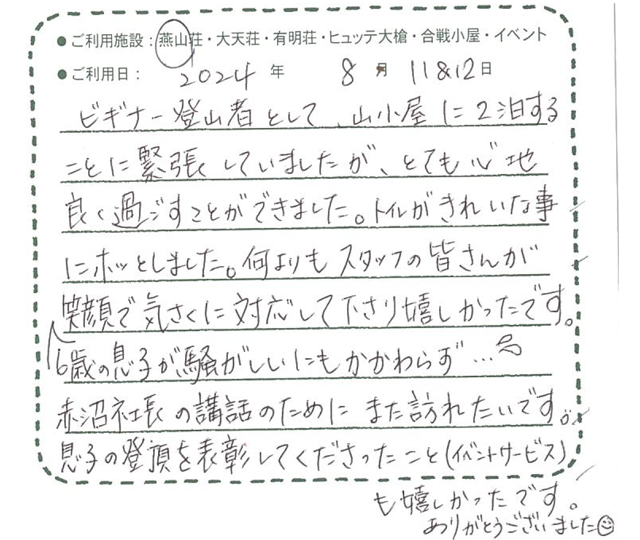 ● ご利用施設：燕山荘・大天荘・有明荘・ヒュッテ大槍・合戦小屋・イベント
● ご利用日： 2024 年 8 月 11&12 日
ビギナー登山者として、山小屋に2泊する
ことに緊張していましたが、とても心地
良く過ごすことができました。トイレがきれいな事
にホッとしました。何よりもスタッフの皆さんが
笑顔で気さくに対応して下さり嬉しかったです。
6歳の息子が騒がしいにもかかわらず…
赤沼社長の講話のためにまた訪れたいです。
息子の登頂を表彰してくださったこと(イベントサービス)
も嬉しかったです。
ありがとうございました☺